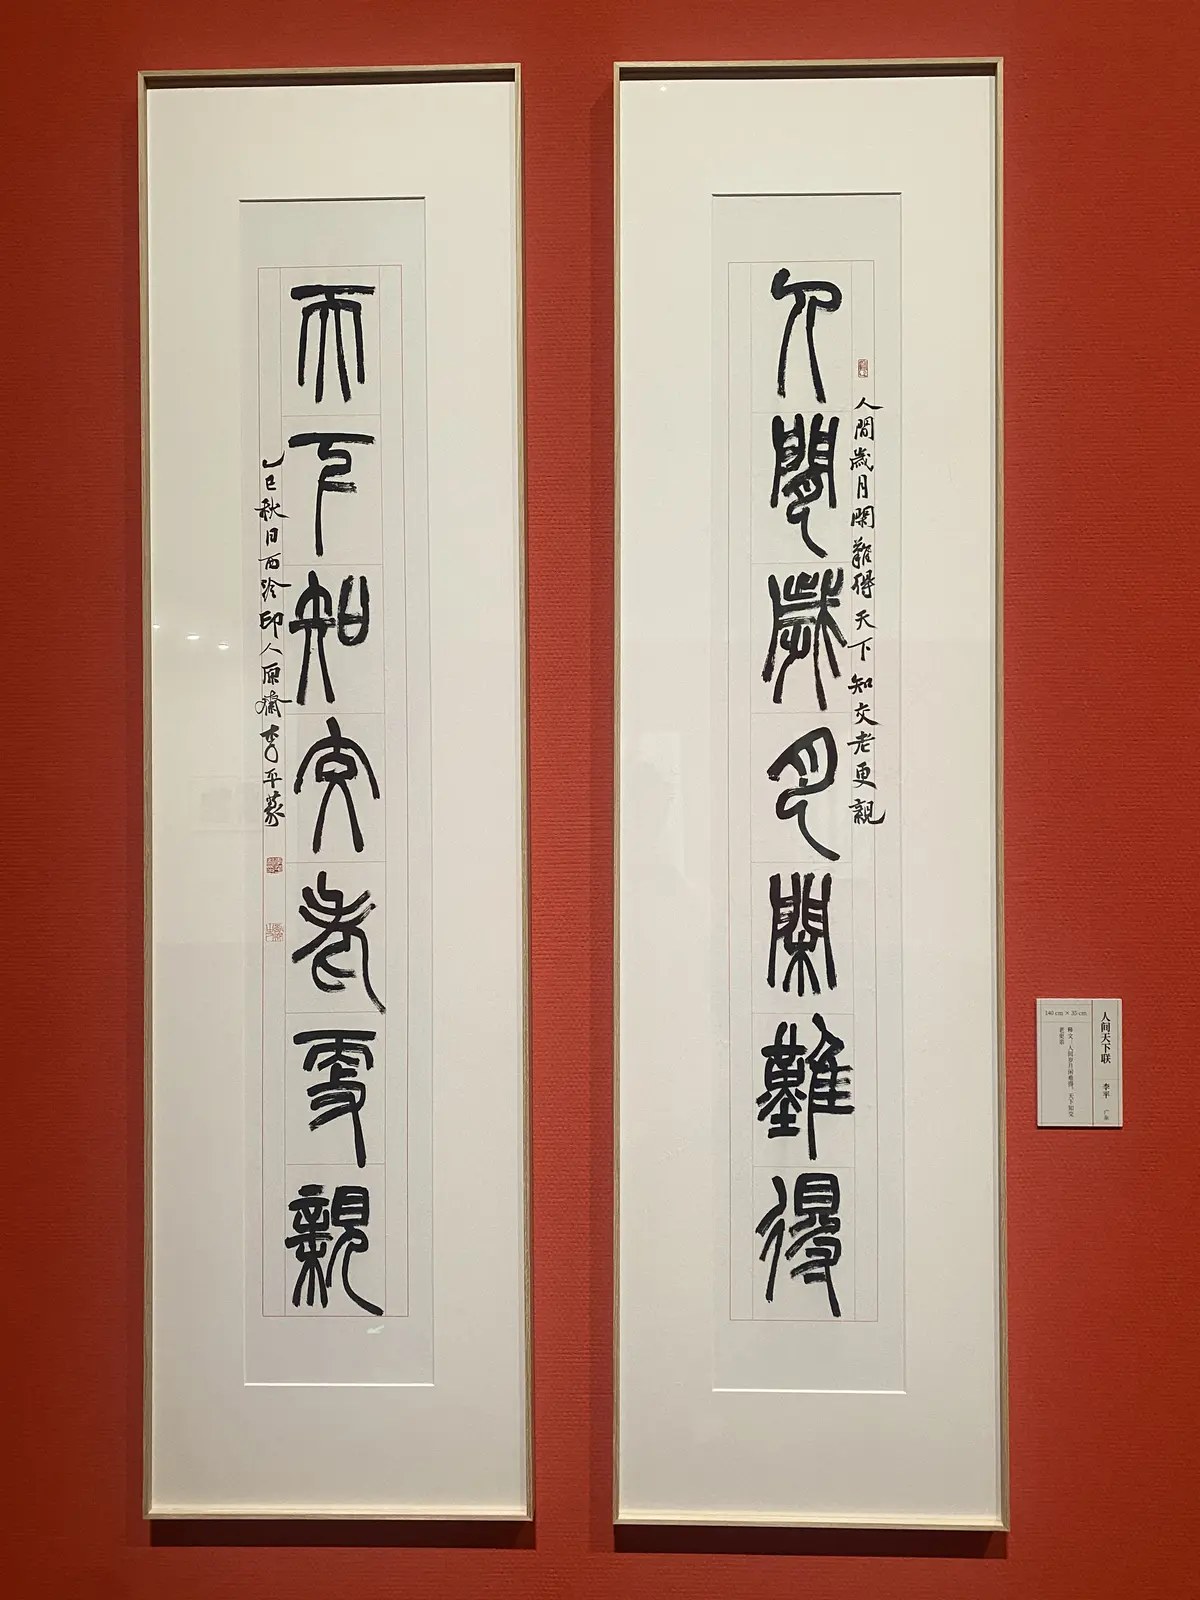 人間歲月閑難得
人間歲月閑難得天下知交老更親
天下知交老更親
乙巳秋日西泠印人原齋李平篆
人间天下联
李平 广东
140 cm × 35 cm
释文：人间岁月闲难得，天下知交
老更亲